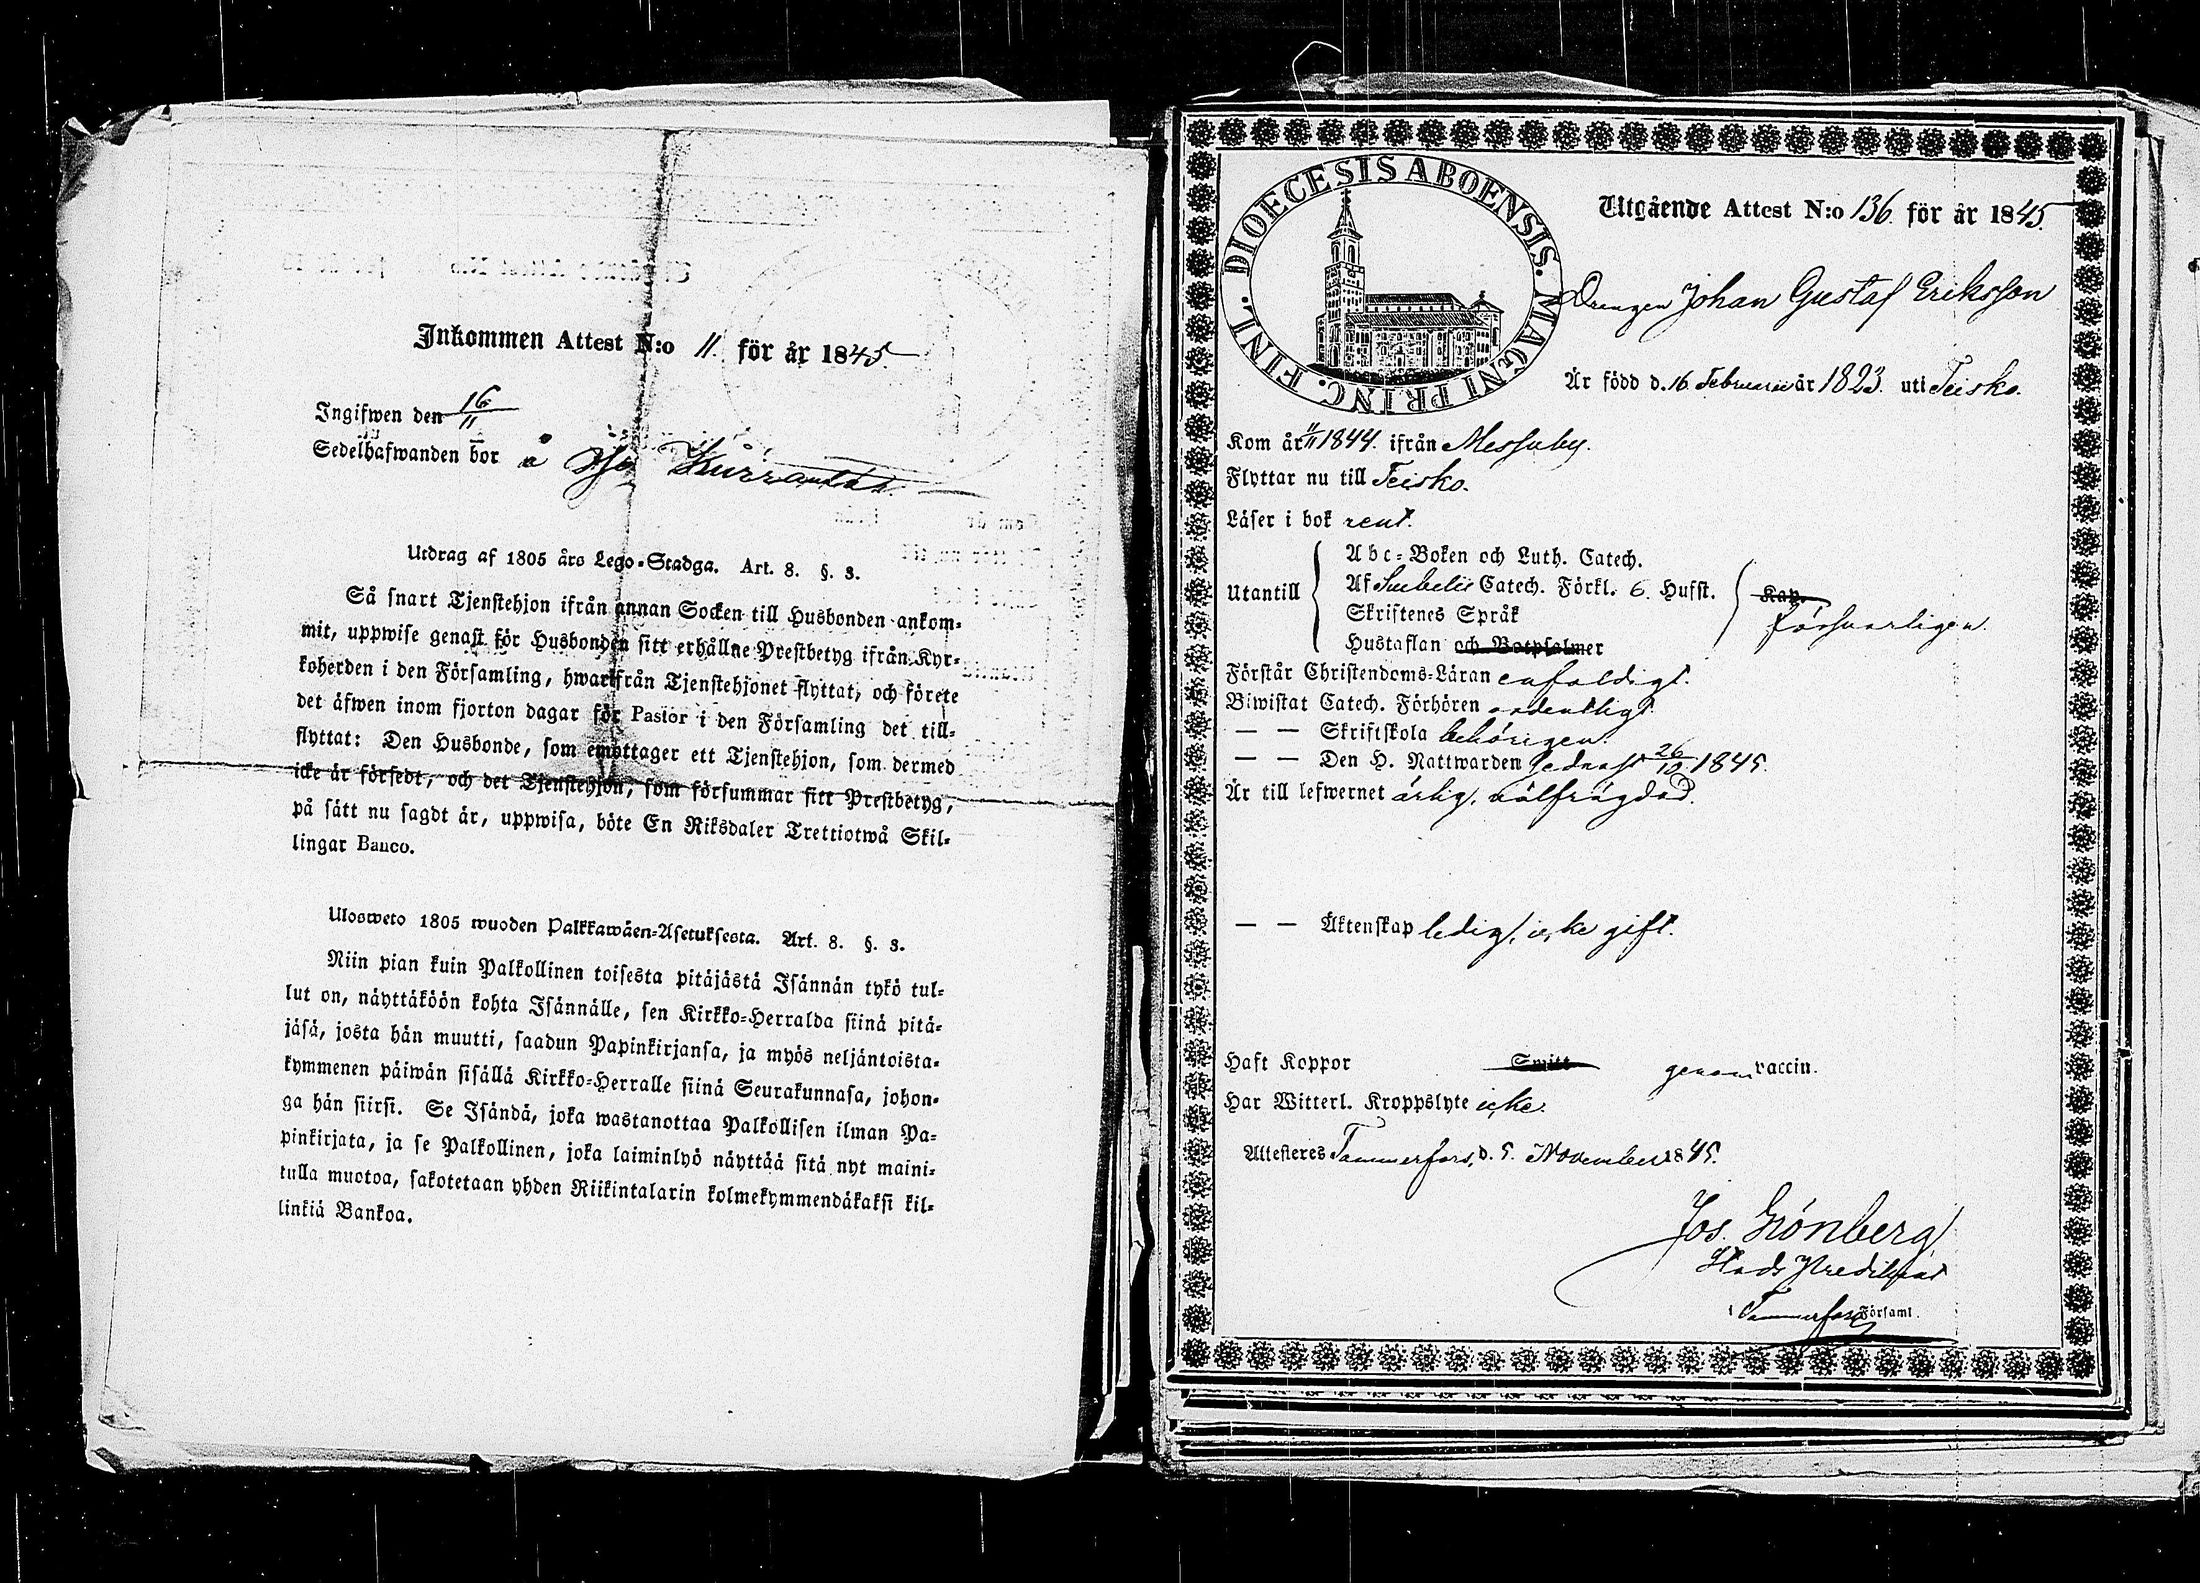 Inkommen Attest N:o 11. för år 1845.
Ingifwen den 16/11
Sedelhafwanden bor å
Utdrag af 1805 års Lego-Stadga. Art. 8. §. 3.
Så snart Tjenstehjon ifrån annan Socken till Husbonden ankom-
mit, uppwise genast för Husbonden sitt erhållne Prestbetyg ifrån Kyr-
koherden i den Församling, hwarifrån Tjenstehjonet flyttat, och förete
det äfwen inom fjorton dagar för Pastor i den Församling det till-
flyttat: Den Husbonde, som emottager ett Tjenstehjon, som dermed
icke är försedt, och det Tjenstehjon, som försummar sitt Prestbetyg,
på sätt nu sagdt är, uppwisa, böte En Riksdaler Trettiotwå Skil-
lingar Banco.
Ulosweto 1805 wuoden Palkkawäen-Asetuksesta. Art. 8. §. 3.
Niin pian kuin Palkollinen toisesta pitäjästä Isännän tykö tul-
lut on, näyttäköön kohta Isännälle, sen Kirkko-Herralda siinä pitä-
jäsä, josta hän muutti, saadun Papinkirjansa, ja myös neljäntoista-
kymmenen päiwän sisällä Kirkko-Herralle siinä Seurakunnasa, johon-
ga hän siirsi. Se Isändä, joka wastanottaa Palkollisen ilman Pa-
pinkirjata, ja se Palkollinen, joka laiminlyö näyttää sitä nyt maini-
tulla muotoa, sakotetaan yhden Riikintalarin kolmekymmendäkaksi kil-
linkiä Bankoa.
DIOECESIS ABOENSIS. MAGNI PRINC. FINL.
Utgående Attest N:o 136. för år 1845.
Drengen Johan Gustaf Eriksson
Är född d. 16 Februarii år 1823. uti Teisko.
Kom år 1844. ifrån Messuby.
Flyttar nu till Teisko.
Läser i bok rent.
Utantill
Abc-Boken och Luth. Catech.
Af Svebelii Catech. Förkl. 6. Hufst.
Skriftenes Språk
Hustaflan och Botpsalmer
Kap.
försvarligen.
Förstår Christendoms-Läran enfaldigt.
Biwistat Catech. Förhören ordentligt
— — Skriftskola behörigen.
— — Den H. Nattwarden sednast 26/10 1845.
Är till lefwernet ärlig, välfrägdad.
— — Äktenskap ledig, icke gift.
Haft Koppor Smitt genom vaccin.
Har Witterl. Kroppslyte icke.
Attesteres Tammerfors, d. 5. November 1845.
Jos. Grönberg
Stads Predikant
i Tammerfors Församl.